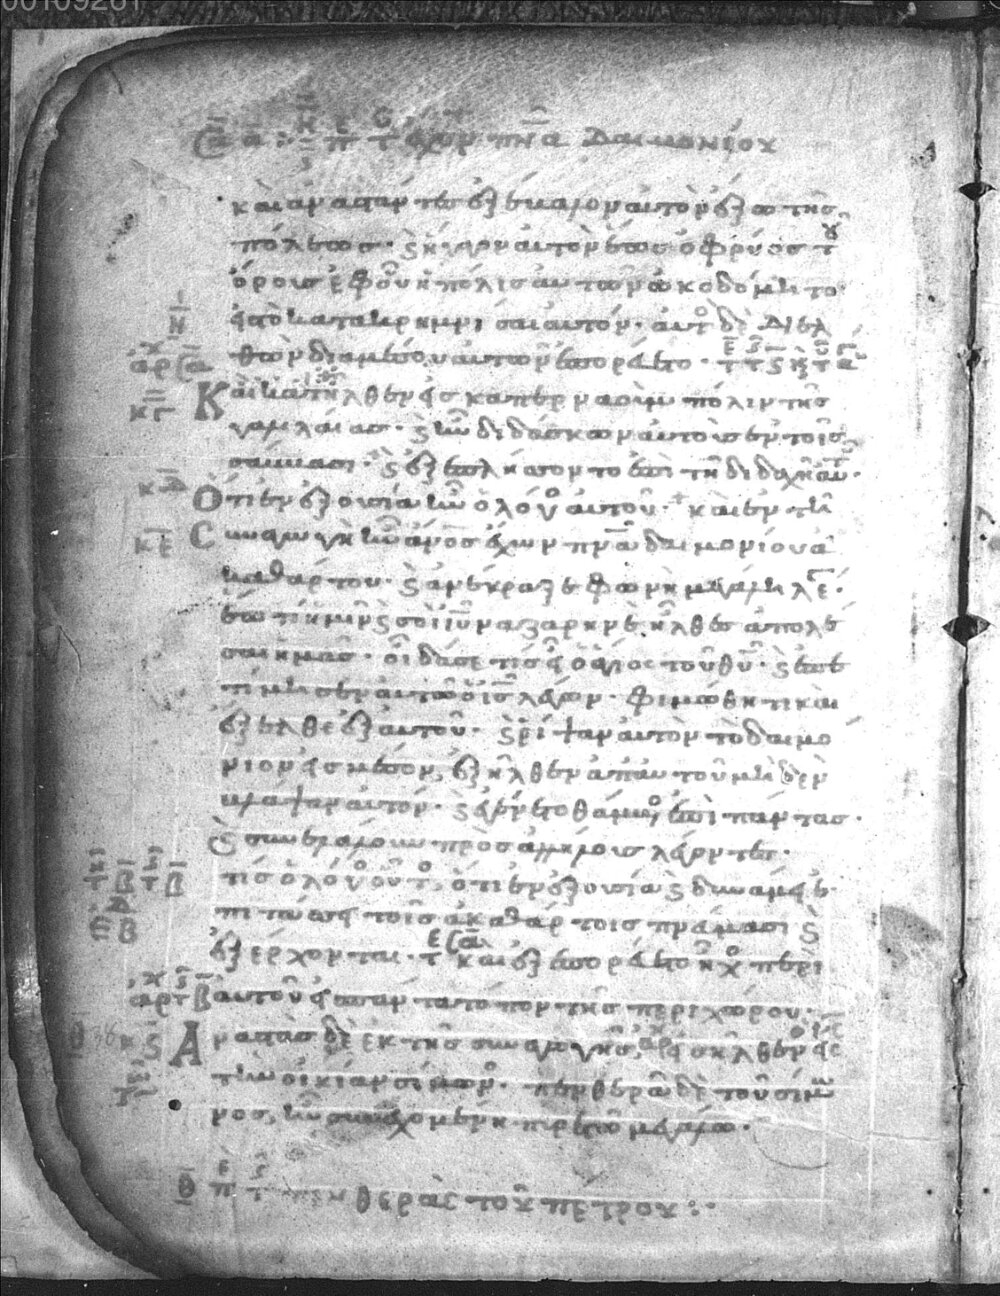 ἔχων πν̅α δαιμονίου
καὶ ἀναστάντες ἐξέβαλον αὐτὸν ἔξω τῆς
πόλεως· ϗ ἤγαγον αὐτὸν ἕως ὀφρύος τοῦ
ὄρους ἐφ' οὗ ἡ πόλις αὐτῶν ὠκοδόμητο·
εἰς τὸ κατακρημνίσαι αὐτόν· αὐτὸς δὲ διελ
θὼν διαμέσου αὐτῶν ἐπορεύετο·
Καὶ κατῆλθεν εἰς καπερναοὺμ πόλιν τῆς
γαλιλαίας· ϗ ἦν διδάσκων αὐτοὺς ἐν τοῖς
σάββασι· ϗ ἐξεπλήσσοντο ἐπὶ τῆ διδαχῆ αὐτ
Ὅτι ἐν ἐξουσία ἦν ὁ λόγος αὐτοῦ· καὶ ἐν τῆ
Συναγωγῆ ἦν ἄνος ἔχων πν̅α δαιμονίου ἀ
καθάρτου· ϗ ἀνέκραξε φωνῆ μεγάλη λέγ
ἔα τί ἡμῖν ϗ σοὶ ιυ ναζαρηνὲ ἦλθες ἀπολέ
σαι ἡμᾶς· οἶδά σε τίς εἶ ὁ ἅγιος τοῦ θυ· ϗ ἐπε
τίμησεν αὐτῶ ὁ ις λέγων· φιμώθητι καὶ
ἔξελθε ἐξ αὐτοῦ· ϗ ρίψαν αὐτὸν τὸ δαιμό
νιον εἰς μέσον, ἐξῆλθεν ἀπ' αὐτοῦ μηδὲν
βλάψαν αὐτόν· ϗ ἐγένετο θάμβος ἐπὶ πάντας·
ϗ συνελάλουν πρὸς ἀλλήλους λέγοντες·
τίς ὁ λόγος οὗτος, ὅτι ἐν ἐξουσία ϗ δυνάμει ἐ
πιτάσσει τοῖς ἀκαθάρτοις πνάμασι ϗ
ἐξέρχονται· καὶ ἐξεπορεύετο ἦχος περὶ
αὐτοῦ εἰς πάντα τόπον τῆς περιχώρου·
Ἀναστὰς δὲ ἐκ τῆς συναγωγῆς, εἰσῆλθεν εἰς
τὴν οἰκίαν σίμωνος· πενθερὰ δὲ τοῦ σίμω
νος, ἦν συνεχομένη πυρετῶ μεγάλω·
πενθερᾶς τοῦ πέτρου:·